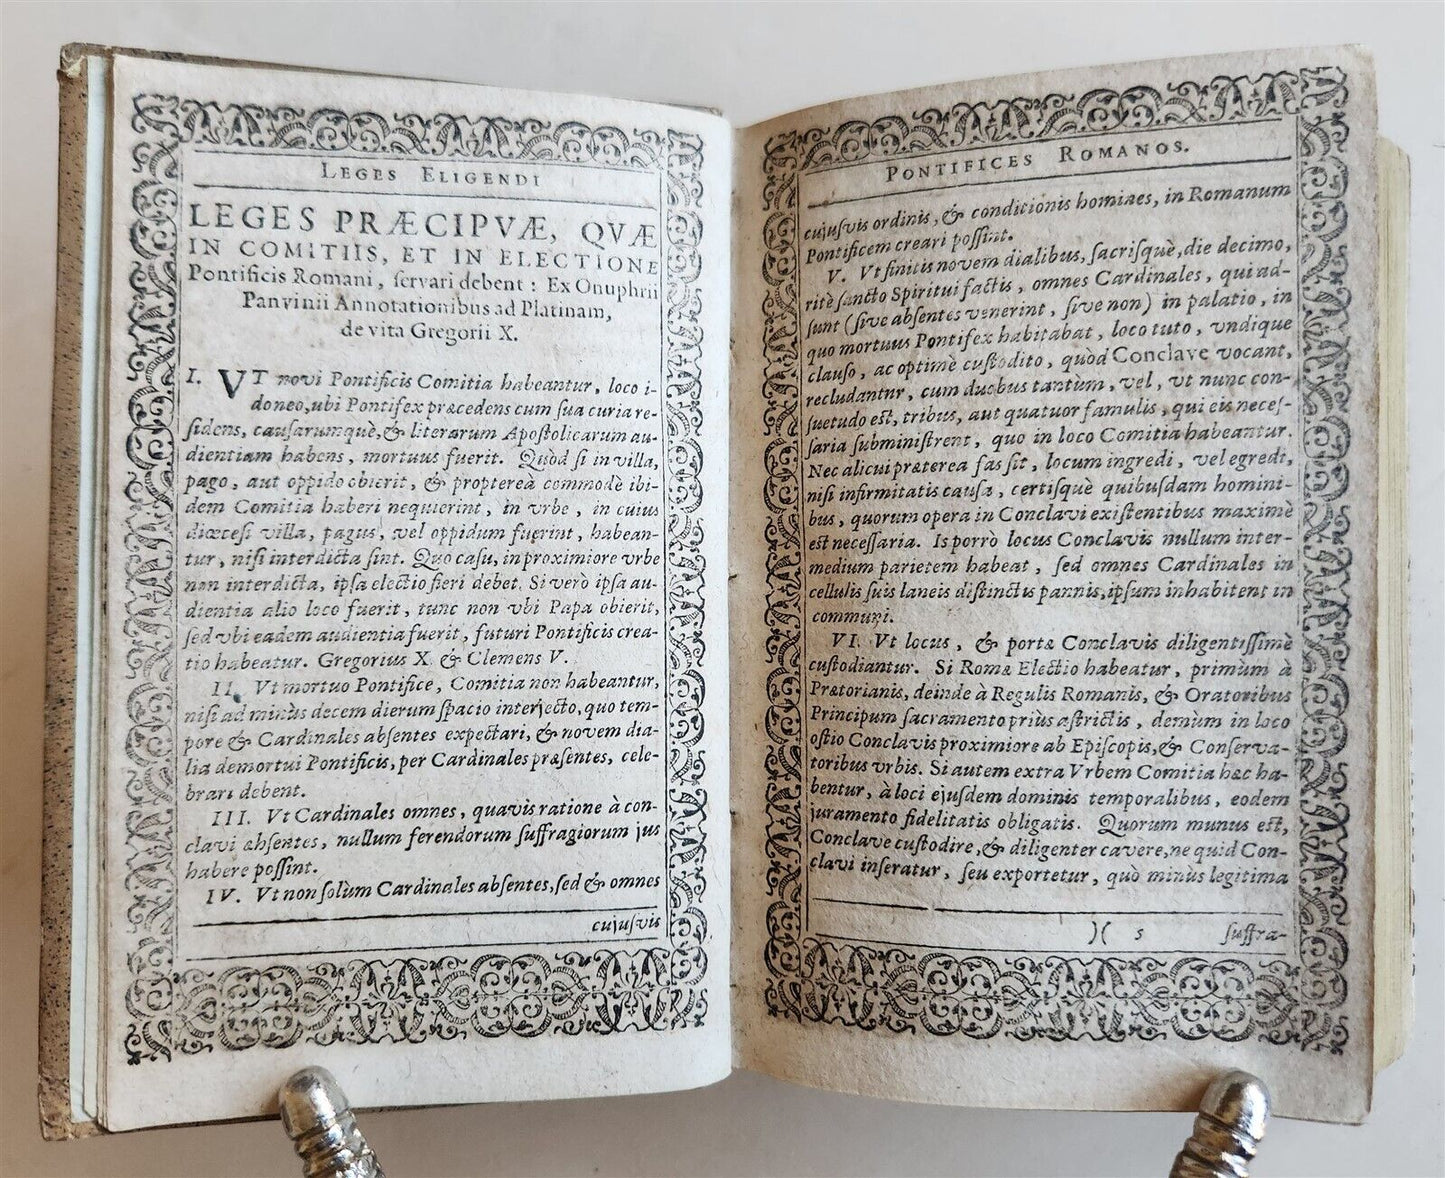 LEGES ELIGENDI
LEGES PRÆCIPVÆ, QVÆ
IN COMITIIS, ET IN ELECTIONE
Pontificis Romani, ſervari debent: Ex Onuphrii
Panvinii Annotationibus ad Platinam,
de vita Gregorii X.
I. VT novi Pontificis Comitia habeantur, loco i-
doneo, ubi Pontifex præcedens cum ſua curia re-
ſidens, cauſarumquè, & literarum Apoſtolicarum au-
dientiam habens, mortuus fuerit. Quòd ſi in villa,
pago, aut oppido obierit, & proptereà commodè ibi-
dem Comitia haberi nequierint, in vrbe, in cuius
diœceſi villa, pagus, vel oppidum fuerint, habean-
tur, niſi interdicta ſint. Quo caſu, in proximiore vrbe
non interdicta, ipſa electio fieri debet. Si verò ipſa au-
dientia alio loco fuerit, tunc non vbi Papa obierit,
ſed vbi eadem audientia fuerit, futuri Pontificis crea-
tio habeatur. Gregorius X. & Clemens V.
II. Vt mortuo Pontifice, Comitia non habeantur,
niſi ad minùs decem dierum ſpacio interjecto, quo tem-
pore & Cardinales abſentes expectari, & novem dia-
lia demortui Pontificis, per Cardinales præſentes, cele-
brari debent.
III. Vt Cardinales omnes, quavis ratione à con-
clavi abſentes, nullum ferendorum ſuffragiorum jus
habere poſſint.
IV. Vt non ſolùm Cardinales abſentes, ſed & omnes
cujuſvis
PONTIFICES ROMANOS.
cujuſvis ordinis, & conditionis homines, in Romanum
Pontificem creari poſſint.
V. Vt finitis novem dialibus, ſacriſquè, die decimo,
ritè ſancto Spiritui factis, omnes Cardinales, qui ad-
ſunt (ſive abſentes venerint, ſive non) in palatio, in
quo mortuus Pontifex habitabat, loco tuto, vndique
clauſo, ac optimè cuſtodito, quòd Conclave vocant,
recludantur, cum duobus tantùm, vel, vt nunc con-
ſuetudo est, tribus, aut quatuor famulis, qui eis neceſ-
ſaria subminiſtrent, quo in loco Comitia habeantur.
Nec alicui præterea fas ſit, locum ingredi, vel egredi,
niſi infirmitatis cauſa, certiſquè quibuſdam homini-
bus, quorum opera in Conclavi exiſtentibus maximè
est neceſſaria. Is porrò locus Conclavis nullum inter-
medium parietem habeat, ſed omnes Cardinales in
cellulis ſuis laneis diſtinctis pannis, ipſum inhabitent in
communi.
VI. Vt locus, & portæ Conclavis diligentiſſimè
cuſtodiantur. Si Romæ Electio habeatur, primùm à
Prætorianis, deinde à Regulis Romanis, & Oratoribus
Principum ſacramento priùs aſtrictis, demum in loco
oſtio Conclavis proximiore ab Epiſcopis, & Conſerva-
toribus vrbis. Si autem extra Vrbem Comitia hæc ha-
bentur, à loci ejuſdem dominis temporalibus, eodem
juramento fidelitatis obligatis. Quorum munus est,
Conclave cuſtodire, & diligenter cavere, ne quid Con-
clavi inſeratur, ſeu exportetur, quò minùs legitima
)( 5 ſuffra-